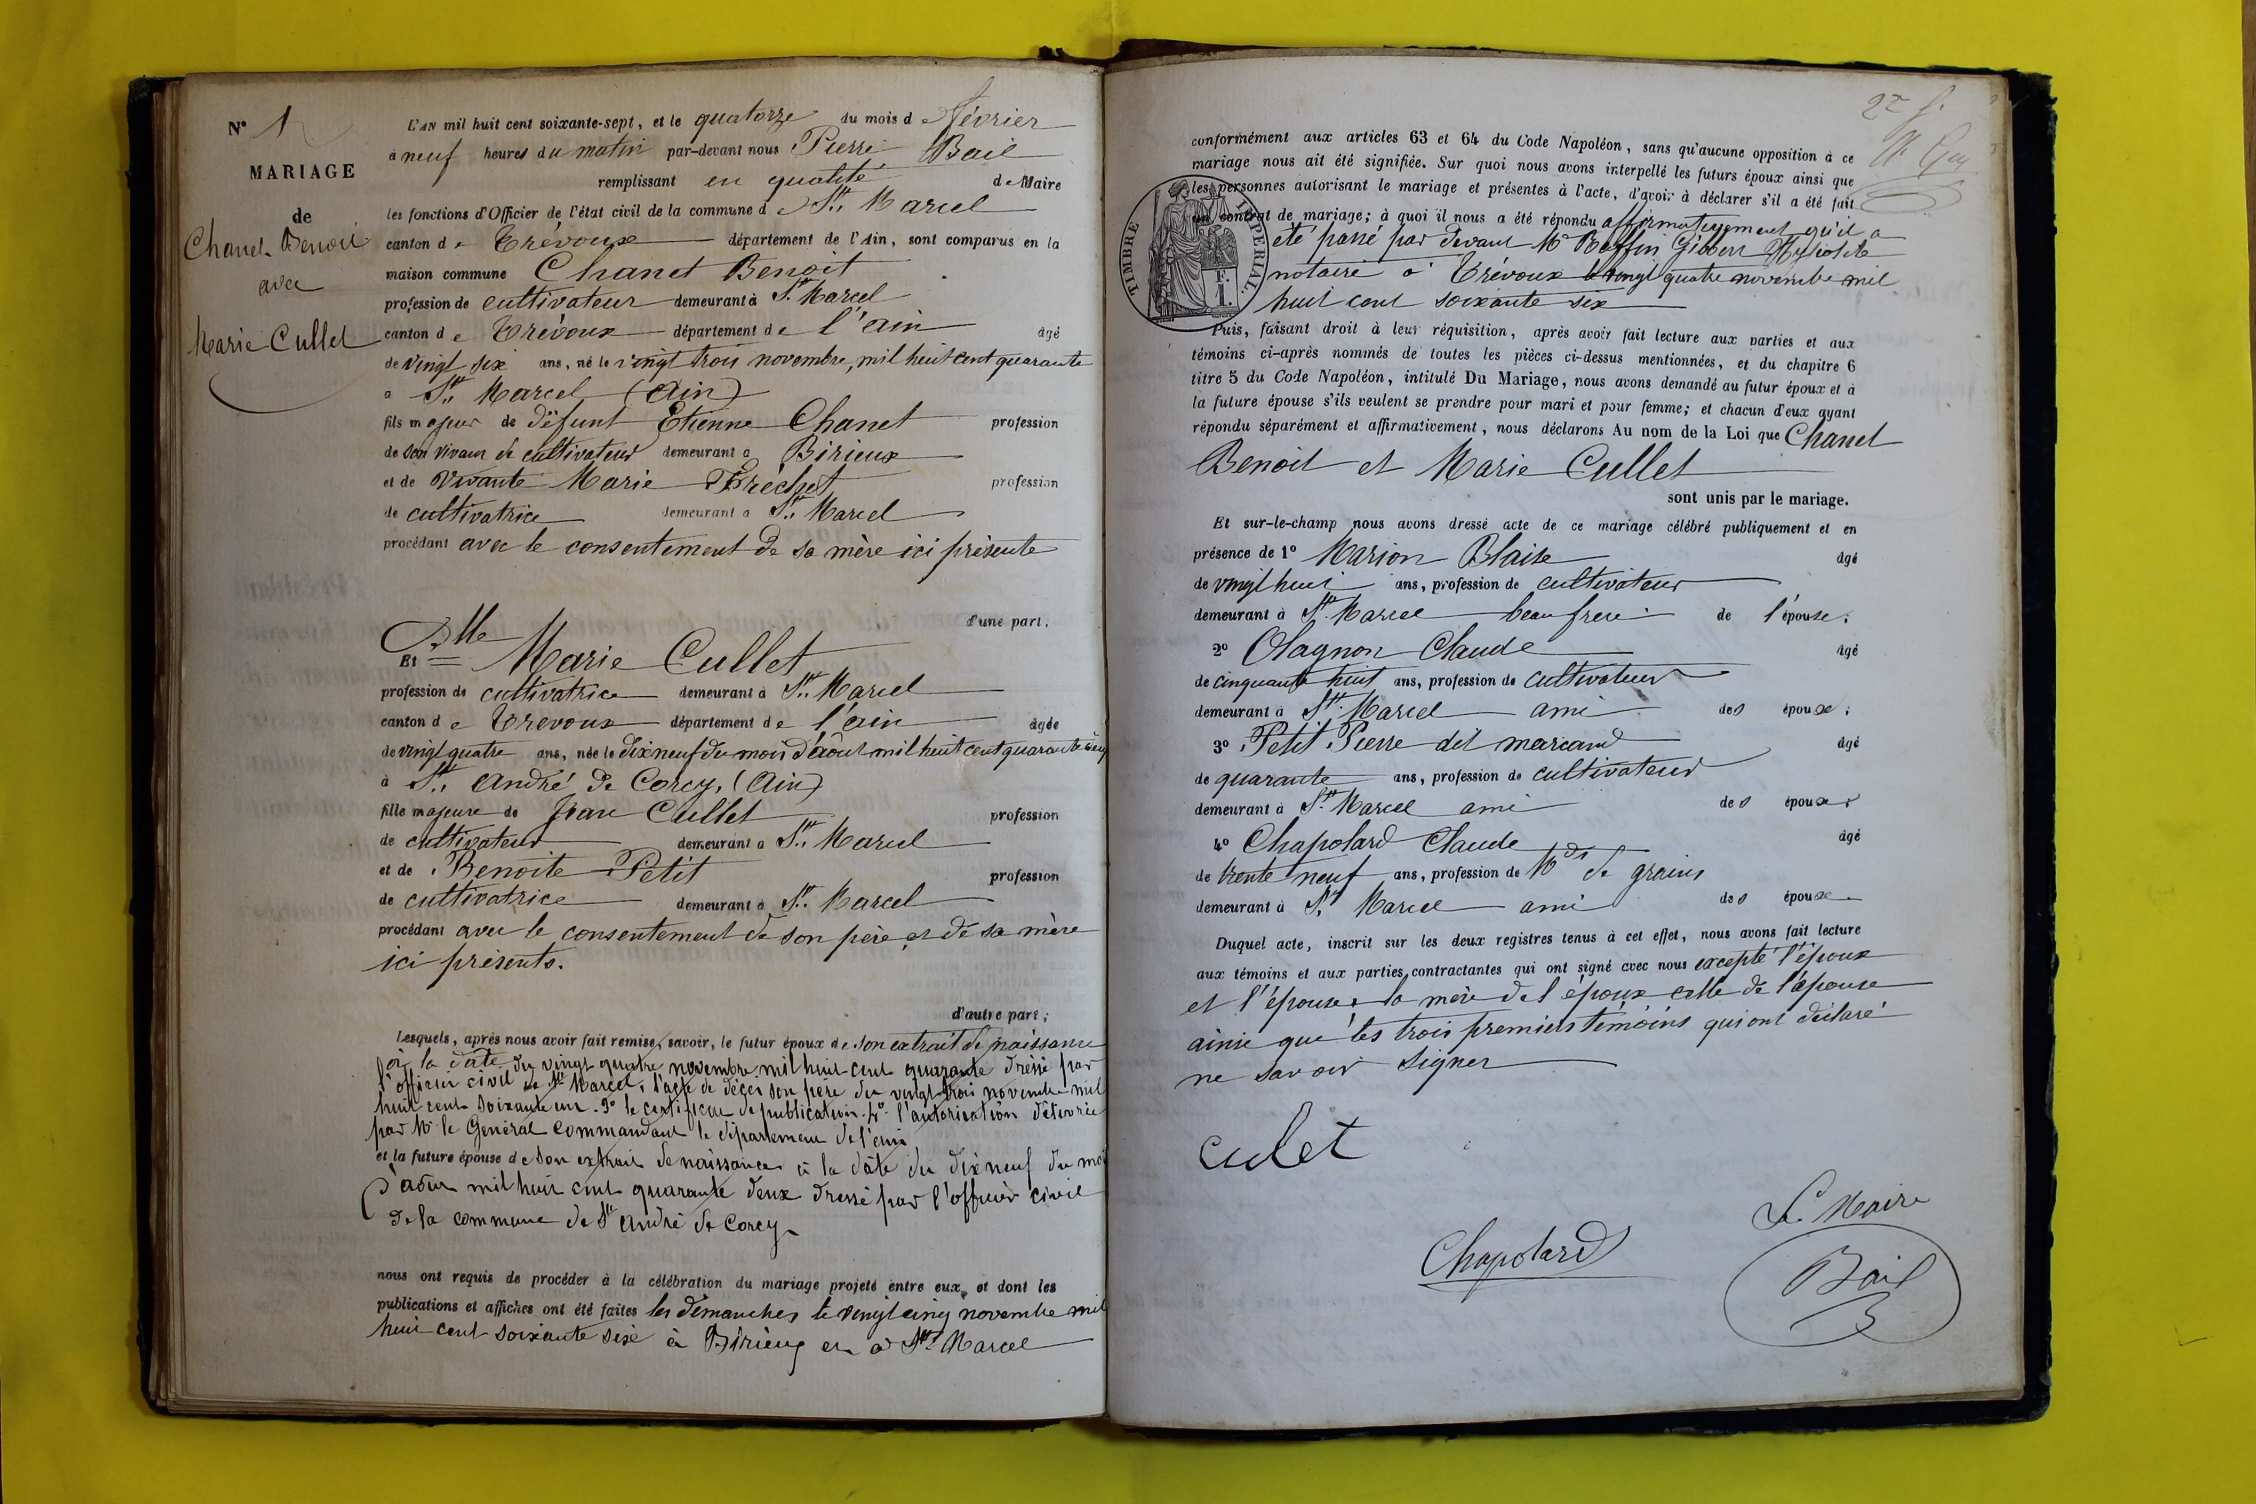 N° 1
MARIAGE
de
Chanel Benoit
avec
Marie Cullet
L'AN mil huit cent soixante-sept, et le quatorze du mois de Février
à neuf heures du matin par-devant nous Pierre Bail
remplissant en qualité de Maire
les fonctions d'Officier de l'état civil de la commune de St Marcel
canton de Trévoux département de l'Ain, sont comparus en la
maison commune Chanel Benoit
profession de cultivateur demeurant à St Marcel
canton de Trévoux département de l'ain âgé
de vingt six ans, né le vingt trois novembre, mil huit cent quarante
à St Marcel (Ain)
fils majeur de défunt Etienne Chanel profession
de son vivant de cultivateur demeurant à Birieux
et de vivante Marie Fréchet profession
de cultivatrice demeurant à St Marcel
procédant avec le consentement de sa mère ici présente
d'une part,
Et Dlle Marie Cullet
profession de cultivatrice demeurant à St Marcel
canton de Trevoux département de l'ain âgée
de vingt quatre ans, née le dix neuf du mois d'août mil huit cent quarante deux
à St André de Corcy, (Ain)
fille majeure de Jean Cullet profession
de cultivateur demeurant à St Marcel
et de Benoite Petit profession
de cultivatrice demeurant à St Marcel
procédant avec le consentement de son père et de sa mère
ici présents.
d'autre part;
Lesquels, après nous avoir fait remise, savoir, le futur époux de son extrait de naissance
à la date du vingt quatre novembre mil huit cent quarante dressé par
l'officier civil de St Marcel, l'acte de décès son père du vingt trois novembre mil
huit cent soixante un. 3° le certificat de publication. 4° l'autorisation délivrée
par Mr le Général Commandant le département de l'ain,
et la future épouse de son extrait de naissance à la date du dix neuf du mois
d'août mil huit cent quarante deux dressé par l'officier civil
de la commune de St André de Corcy
nous ont requis de procéder à la célébration du mariage projeté entre eux, et dont les
publications et affiches ont été faites les dimanches le vingt cinq novembre mil
huit cent soixante six à Birieux et à St Marcel
2e f.
conformément aux articles 63 et 64 du Code Napoléon, sans qu'aucune opposition à ce
mariage nous ait été signifiée. Sur quoi nous avons interpellé les futurs époux ainsi que
les personnes autorisant le mariage et présentes à l'acte, d'avoir à déclarer s'il a été fait
un contrat de mariage; à quoi il nous a été répondu affirmativement qu'il a
été passé par devant Me Gilbert
notaire à Trévoux le vingt quatre novembre mil
huit cent soixante six
TIMBRE IMPERIAL.
1 F.
Puis, faisant droit à leur réquisition, après avoir fait lecture aux parties et aux
témoins ci-après nommés de toutes les pièces ci-dessus mentionnées, et du chapitre 6
titre 5 du Code Napoléon, intitulé Du Mariage, nous avons demandé au futur époux et à
la future épouse s'ils veulent se prendre pour mari et pour femme; et chacun d'eux ayant
répondu séparément et affirmativement, nous déclarons Au nom de la Loi que Chanel
Benoit et Marie Cullet
sont unis par le mariage.
Et sur-le-champ nous avons dressé acte de ce mariage célébré publiquement et en
présence de 1° Marion Blaise âgé
de vingt huit ans, profession de cultivateur
demeurant à St Marcel beau frere de l'épouse;
2° Olagnon Claude âgé
de cinquante huit ans, profession de cultivateur
demeurant à St Marcel ami des époux;
3° Petit Pierre dit marcand âgé
de quarante ans, profession de cultivateur
demeurant à St Marcel ami des époux
4° Chapolard Claude âgé
de trente neuf ans, profession de Md de grains
demeurant à St Marcel ami des époux
Duquel acte, inscrit sur les deux registres tenus à cet effet, nous avons fait lecture
aux témoins et aux parties contractantes qui ont signé avec nous excepté l'époux
et l'épouse, la mère de l'époux celle de l'épouse
ainsi que les trois premiers témoins qui ont déclaré
ne savoir signer
culet
Chapolard
Le Maire
Bail